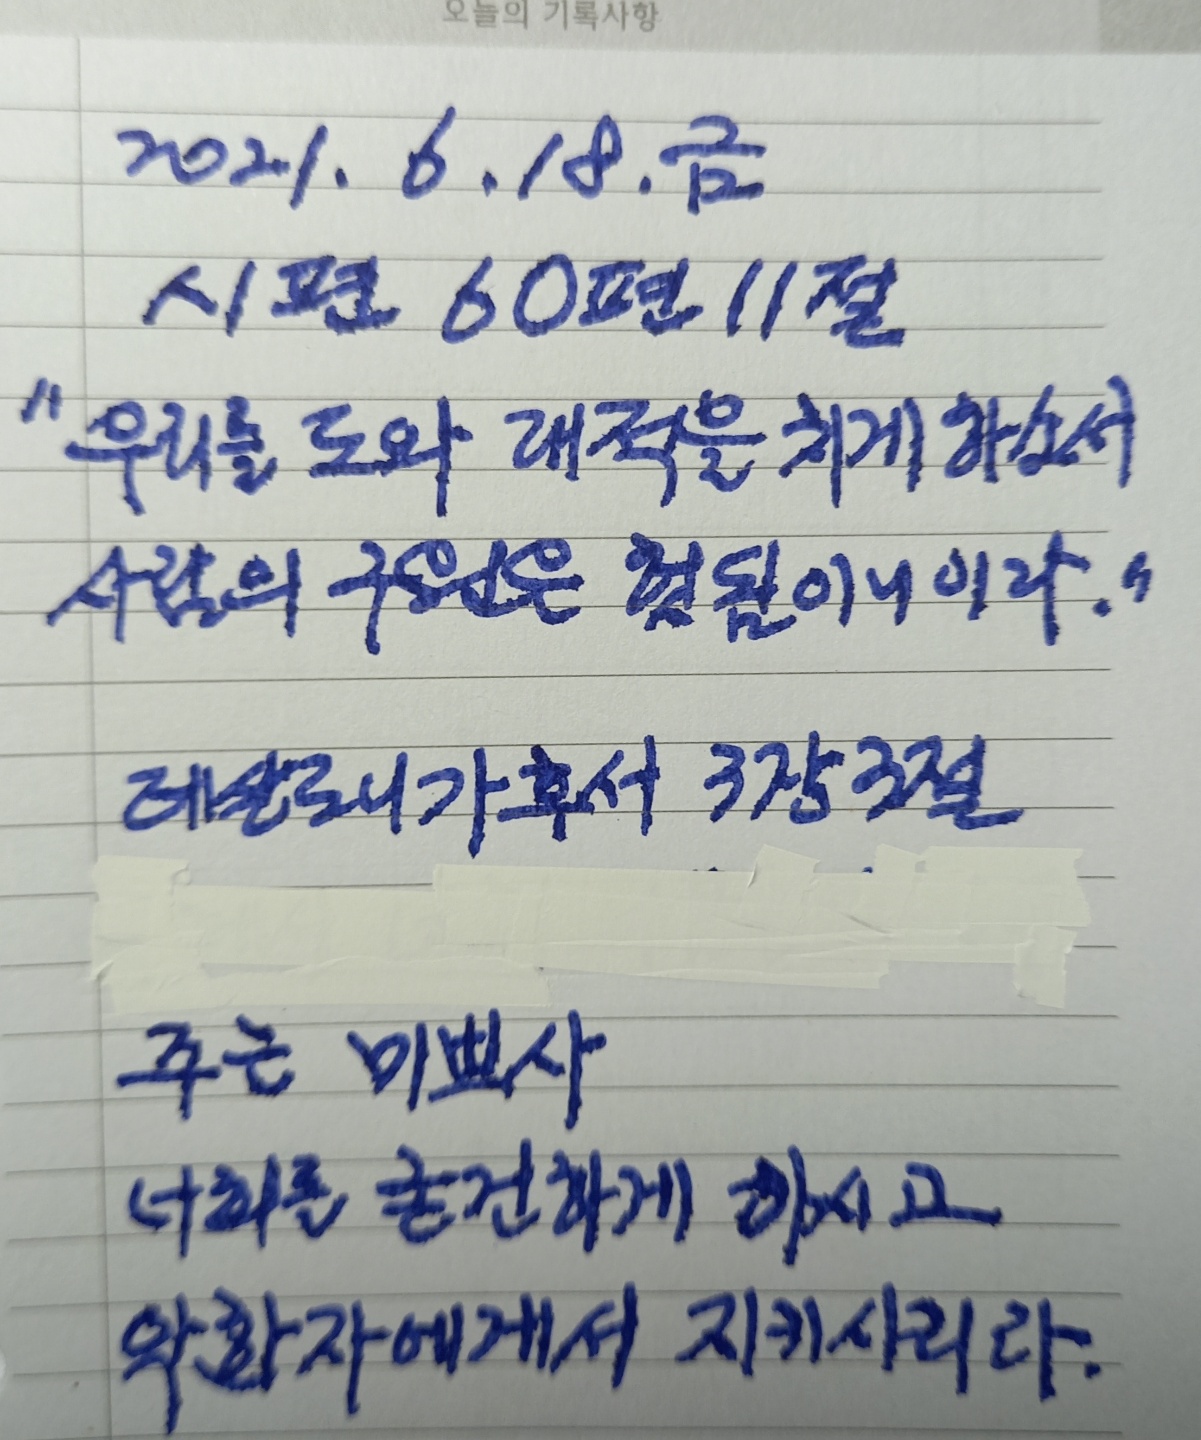 오늘의 기록사항
2021. 6. 18. 금
시편 60편 11절
"우리를 도와 대적을 치게 하소서
사람의 구원은 헛됨이니이다."
데살로니가후서 3장 3절
주는 미쁘사
너희를 굳건하게 하시고
악한 자에게서 지키시리라.